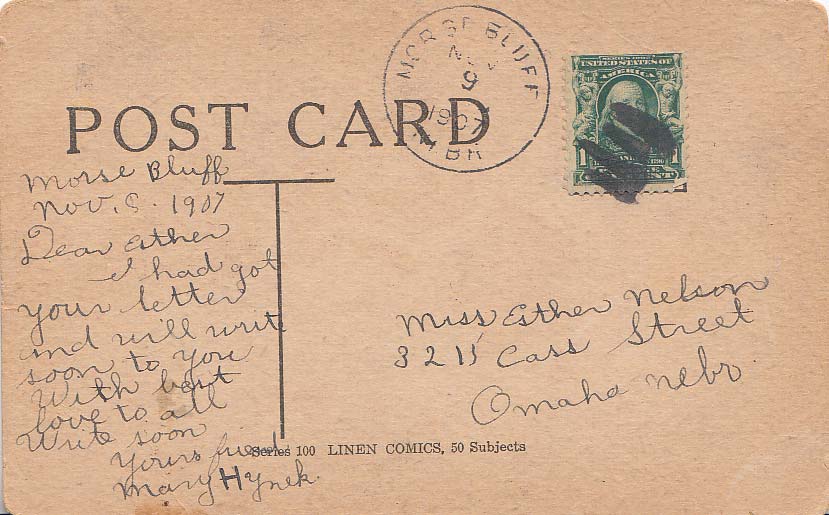 POST CARD
MORSE BLUFF
NOV
9
1907
NBR
SERIES 1902
UNITED STATES OF AMERICA
1
Morse Bluff
Nov. 8. 1907
Dear Esther
I had got
your letter
and will write
soon to you
With best
love to all
Write soon
yours friend
Mary Hynek.
Miss Esther Nelson
3211 Cass Street
Omaha Nebr.
Series 100 LINEN COMICS, 50 Subjects